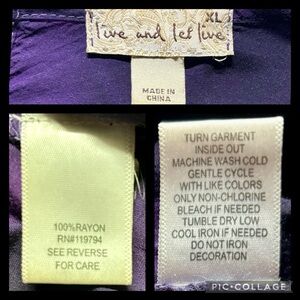 XL
live and let live
MADE IN
CHINA
100%RAYON
RN#119794
SEE REVERSE
FOR CARE
TURN GARMENT
INSIDE OUT
MACHINE WASH COLD
GENTLE CYCLE
WITH LIKE COLORS
ONLY NON-CHLORINE
BLEACH IF NEEDED
TUMBLE DRY LOW
COOL IRON IF NEEDED
DO NOT IRON
DECORATION
PIC•COLLAGE